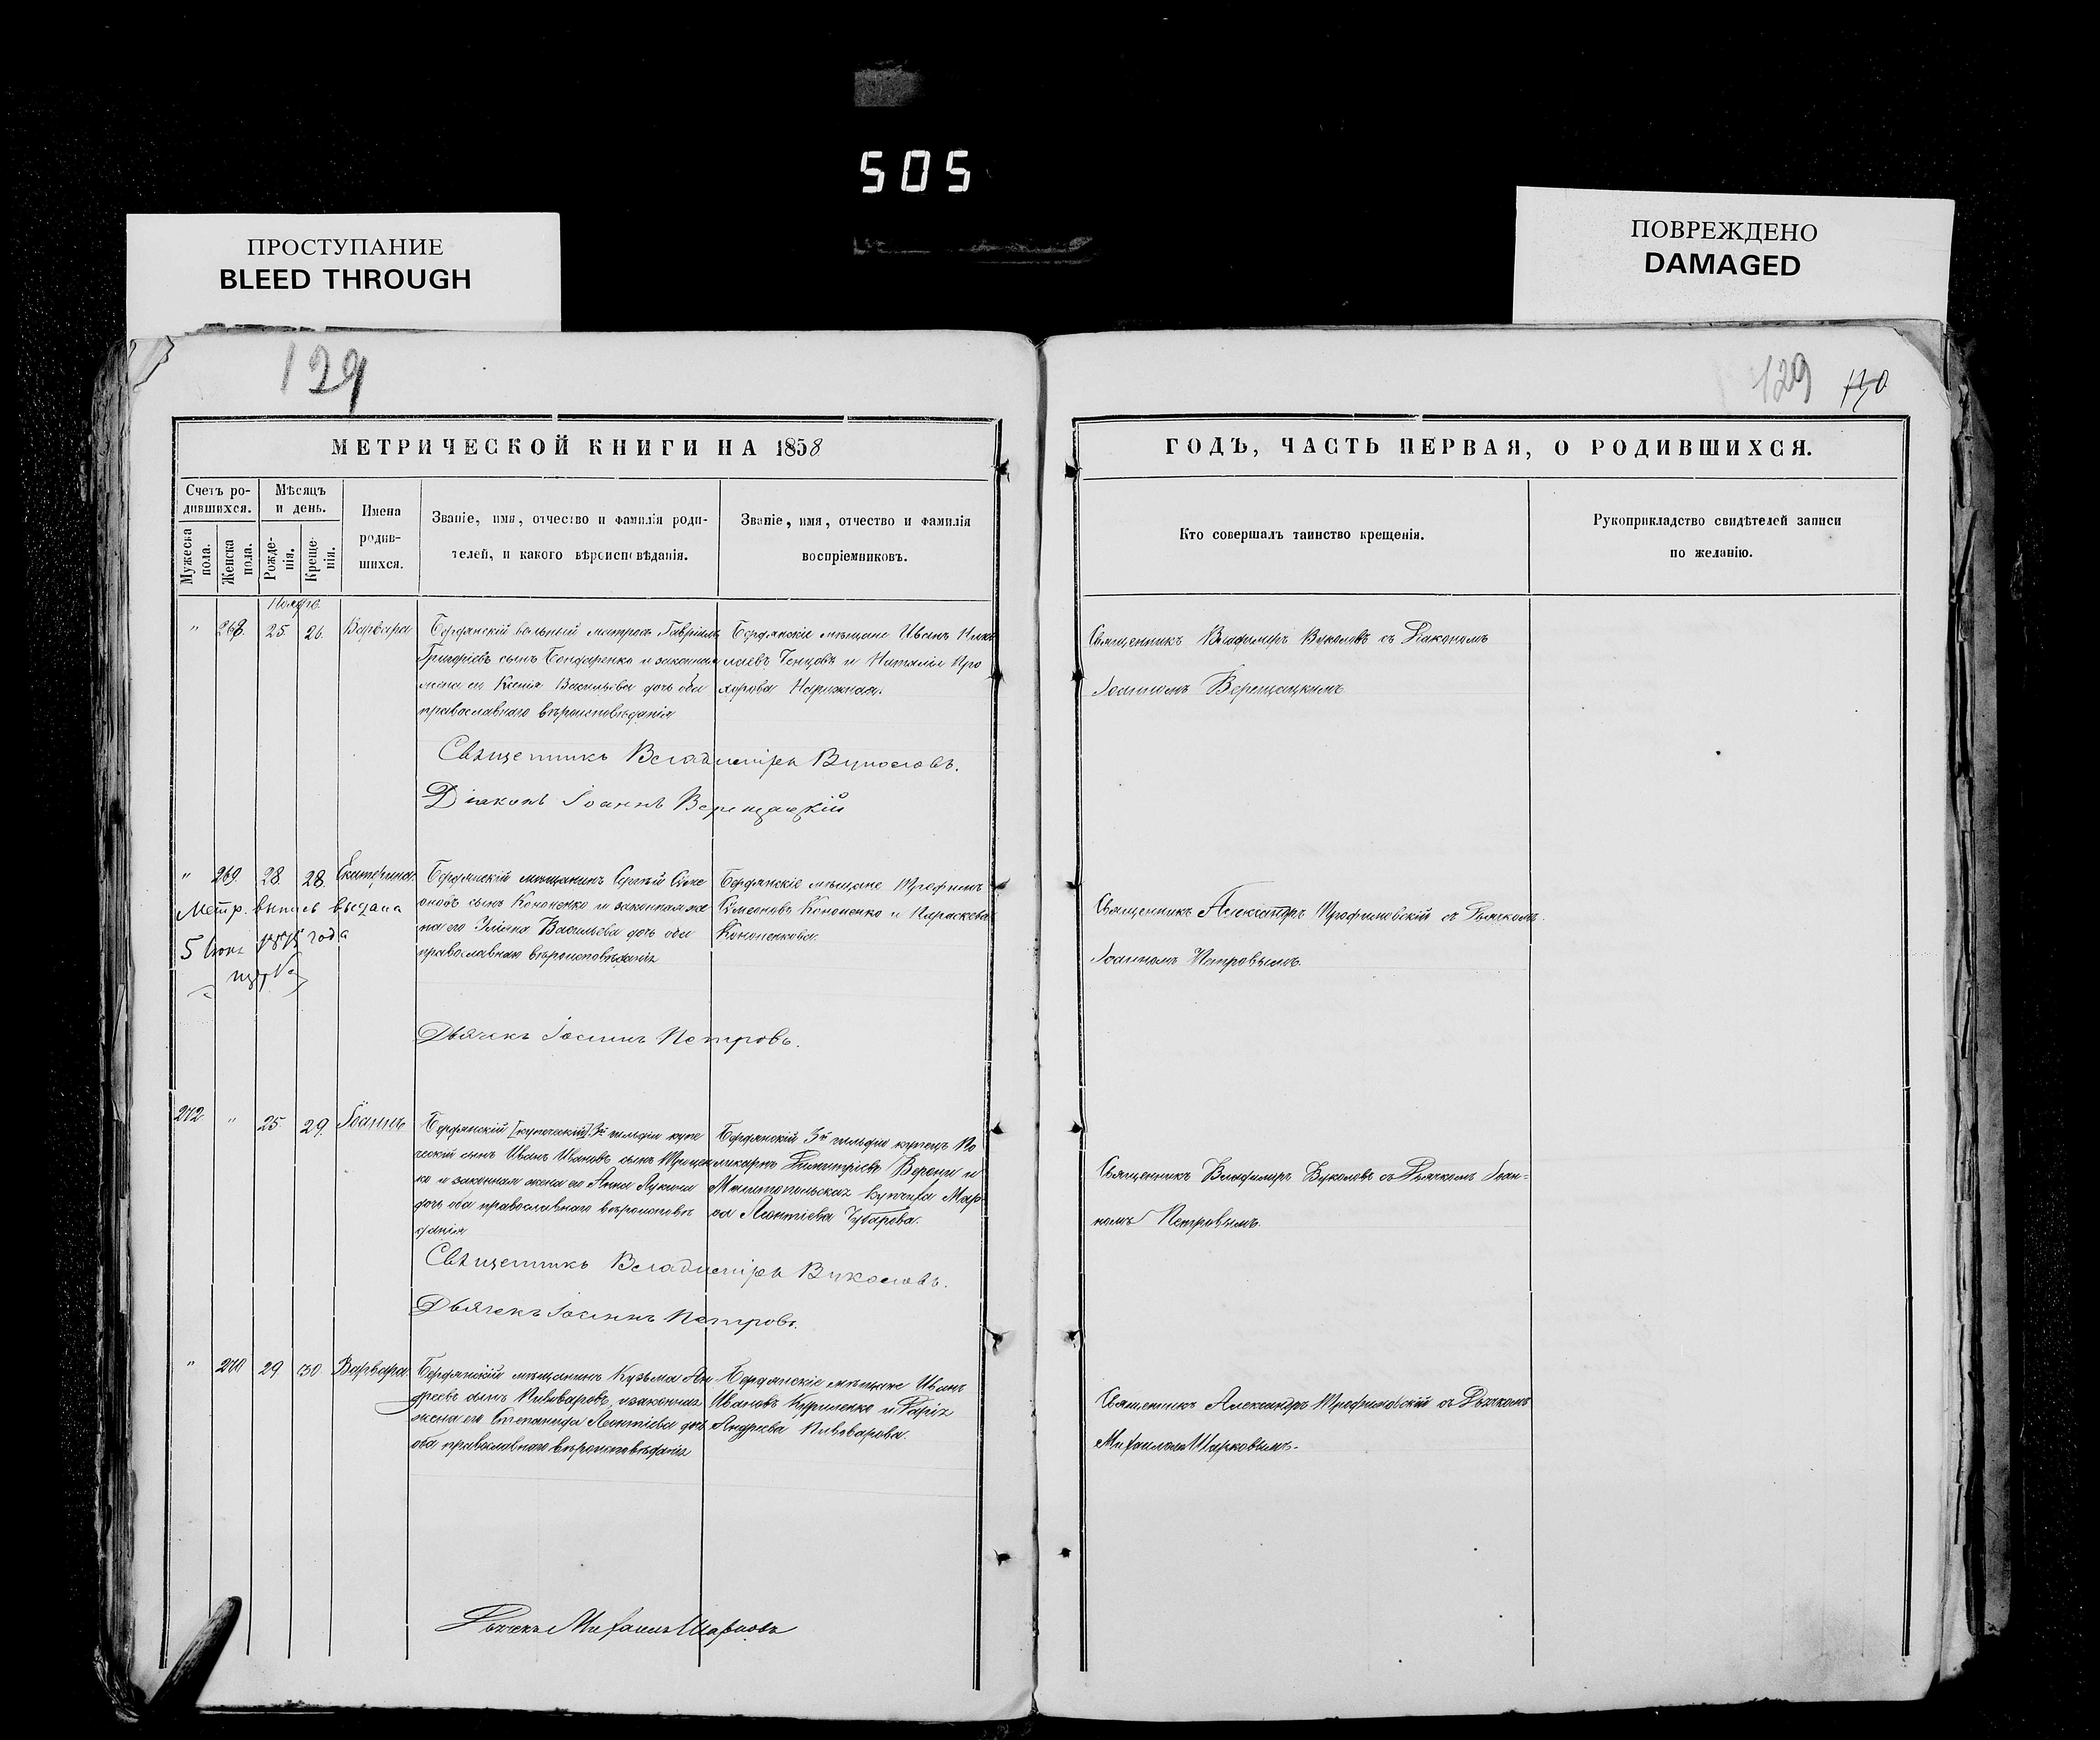 505
ПРОСТУПАНИЕ
BLEED THROUGH
ПОВРЕЖДЕНО
DAMAGED
129
129 130
МЕТРИЧЕСКОЙ КНИГИ НА 1858
ГОДЪ, ЧАСТЬ ПЕРВАЯ, О РОДИВШИХСЯ.
Счетъ ро-
дившихся.
Мужеска
пола.
Женска
пола.
Мѣсяцъ
и день.
Рожде-
нія.
Креще-
нія.
Имена
родив-
шихся.
Званіе, имя, отчество и фамилія роди-
телей, и какого вѣроисповѣданія.
Званіе, имя, отчество и фамилія
воспріемниковъ.
Кто совершалъ таинство крещенія.
Рукоприкладство свидѣтелей записи
по желанію.
Ноября
" 268. 25. 26. Варвара
Бердянскій вольный матросъ Гавріилъ
Григоріевъ сынъ Бондаренко и законная
жена его Ксенія Васильева дочь оба
православнаго вѣроисповѣданія
Бердянскіе мѣщане Иванъ Нико
лаевъ Ченцовъ и Наталія Про
хорова Нарижная.
Священникъ Владимиръ Вуколовъ съ Діакономъ
Іоанномъ Верещацкимъ.
Священникъ Владиміръ Вуколовъ.
Діаконъ Іоаннъ Верещацкій
" 269 28. 28. Екатерина.
Метр. выпись выдана
5 Іюня года
Бердянскій мѣщанинъ Сергѣй Симе
оновъ сынъ Кононенко и законная же
на его Уліяна Васильева дочь оба
православнаго вѣроисповѣданія
Бердянскіе мѣщане Трофимъ
Симеоновъ Кононенко и Параскева
Кононенкова.
Священникъ Александръ Трофимовскій съ Дьячкомъ
Іоанномъ Петровымъ.
Дьячекъ Іоаннъ Петровъ.
272 " 25. 29. Іоаннъ
Бердянскій [купеческій] 3й гильдіи купе
ческій сынъ Иванъ Ивановъ сынъ Троцен
ко и законная жена его Анна Лукина
дочь оба православнаго вѣроисповѣ
данія
Бердянскій 3й гильдіи купецъ По
ликарпъ Димитріевъ Верени и
Мелитопольская купчиха Мар
ѳа Леонтіева Чубарева.
Священникъ Владимиръ Вуколовъ съ Дьячкомъ Іоан-
номъ Петровымъ.
Священникъ Владиміръ Вуколовъ.
Дьячекъ Іоаннъ Петровъ.
" 270 29 30 Варвара.
Бердянскій мѣщанинъ Кузьма Ан-
дреевъ сынъ Пивоваровъ, и законная
жена его Степанида Леонтіева дочь
оба православнаго вѣроисповѣданія
Бердянскіе мѣщане Иванъ
Ивановъ Куриленко и Дарія
Андреева Пивоварова.
Священникъ Александръ Трофимовскій съ Дьячкомъ
Михаиломъ Шарковымъ.
Дьячекъ Михаилъ Шарковъ